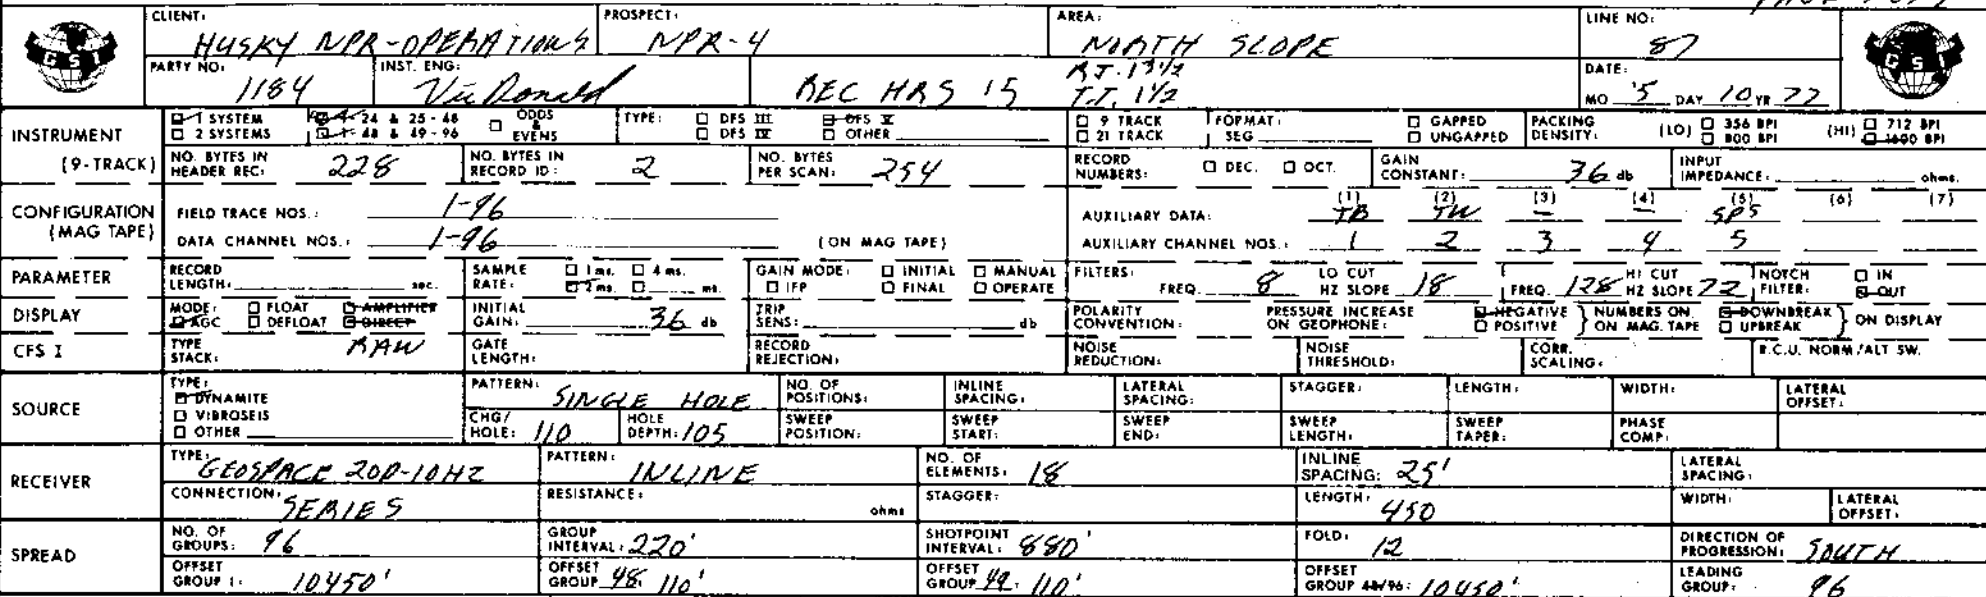 CLIENT: HUSKY NPR-OPERATIONS PROSPECT: NPR-4 AREA: NORTH SLOPE LINE NO: 87
GSI GSI
PARTY NO: 1184 INST. ENG: Vic Donald REC HRS 15 R.T. 13 1/2 T.T. 1 1/2 DATE: MO 5 DAY 10 YR 77
INSTRUMENT (9-TRACK) 1 SYSTEM 2 SYSTEMS 1-24 & 25-48 1-48 & 49-96 ODDS & EVENS TYPE: DFS III DFS IV DFS V OTHER 9 TRACK 21 TRACK FORMAT: SEG GAPPED UNGAPPED PACKING DENSITY: (LO) 356 BPI 800 BPI (HI) 712 BPI 1600 BPI
NO. BYTES IN HEADER REC: 228 NO. BYTES IN RECORD ID: 2 NO. BYTES PER SCAN: 254 RECORD NUMBERS: DEC. OCT. GAIN CONSTANT: 36 db INPUT IMPEDANCE: ohms.
CONFIGURATION (MAG TAPE) FIELD TRACE NOS.: 1-96 AUXILIARY DATA: (1) TB (2) TW (3) - (4) - (5) SPS (6) (7)
DATA CHANNEL NOS.: 1-96 (ON MAG TAPE) AUXILIARY CHANNEL NOS.: 1 2 3 4 5
PARAMETER RECORD LENGTH: sec. SAMPLE RATE: 1 ms. 4 ms. 2 ms. ms. GAIN MODE: IFP INITIAL FINAL MANUAL OPERATE FILTERS: FREQ. 8 LO CUT HZ SLOPE 18 FREQ. 128 HI CUT HZ SLOPE 72 NOTCH FILTER: IN OUT
DISPLAY MODE: AGC FLOAT DEFLOAT AMPLIFIER DIRECT INITIAL GAIN: 36 db TRIP SENS: db POLARITY CONVENTION: PRESSURE INCREASE ON GEOPHONE: NEGATIVE POSITIVE } NUMBERS ON ON MAG. TAPE DOWNBREAK UPBREAK } ON DISPLAY
CFS I TYPE STACK: RAW GATE LENGTH: RECORD REJECTION: NOISE REDUCTION: NOISE THRESHOLD: CORR. SCALING: R.C.U. NORM/ALT SW.
SOURCE TYPE: DYNAMITE VIBROSEIS OTHER PATTERN: SINGLE HOLE NO. OF POSITIONS: INLINE SPACING: LATERAL SPACING: STAGGER: LENGTH: WIDTH: LATERAL OFFSET:
CHG/HOLE: 110 HOLE DEPTH: 105 SWEEP POSITION: SWEEP START: SWEEP END: SWEEP LENGTH: SWEEP TAPER: PHASE COMP:
RECEIVER TYPE: GEOSPACE 20D-10HZ PATTERN: INLINE NO. OF ELEMENTS: 18 INLINE SPACING: 25' LATERAL SPACING:
CONNECTION: SERIES RESISTANCE: ohms STAGGER: LENGTH: 450 WIDTH: LATERAL OFFSET:
SPREAD NO. OF GROUPS: 96 GROUP INTERVAL: 220' SHOTPOINT INTERVAL: 880' FOLD: 12 DIRECTION OF PROGRESSION: SOUTH
OFFSET GROUP 1: 10450' OFFSET GROUP 48: 110' OFFSET GROUP 49: 110' OFFSET GROUP 48/96: 10450' LEADING GROUP: 96